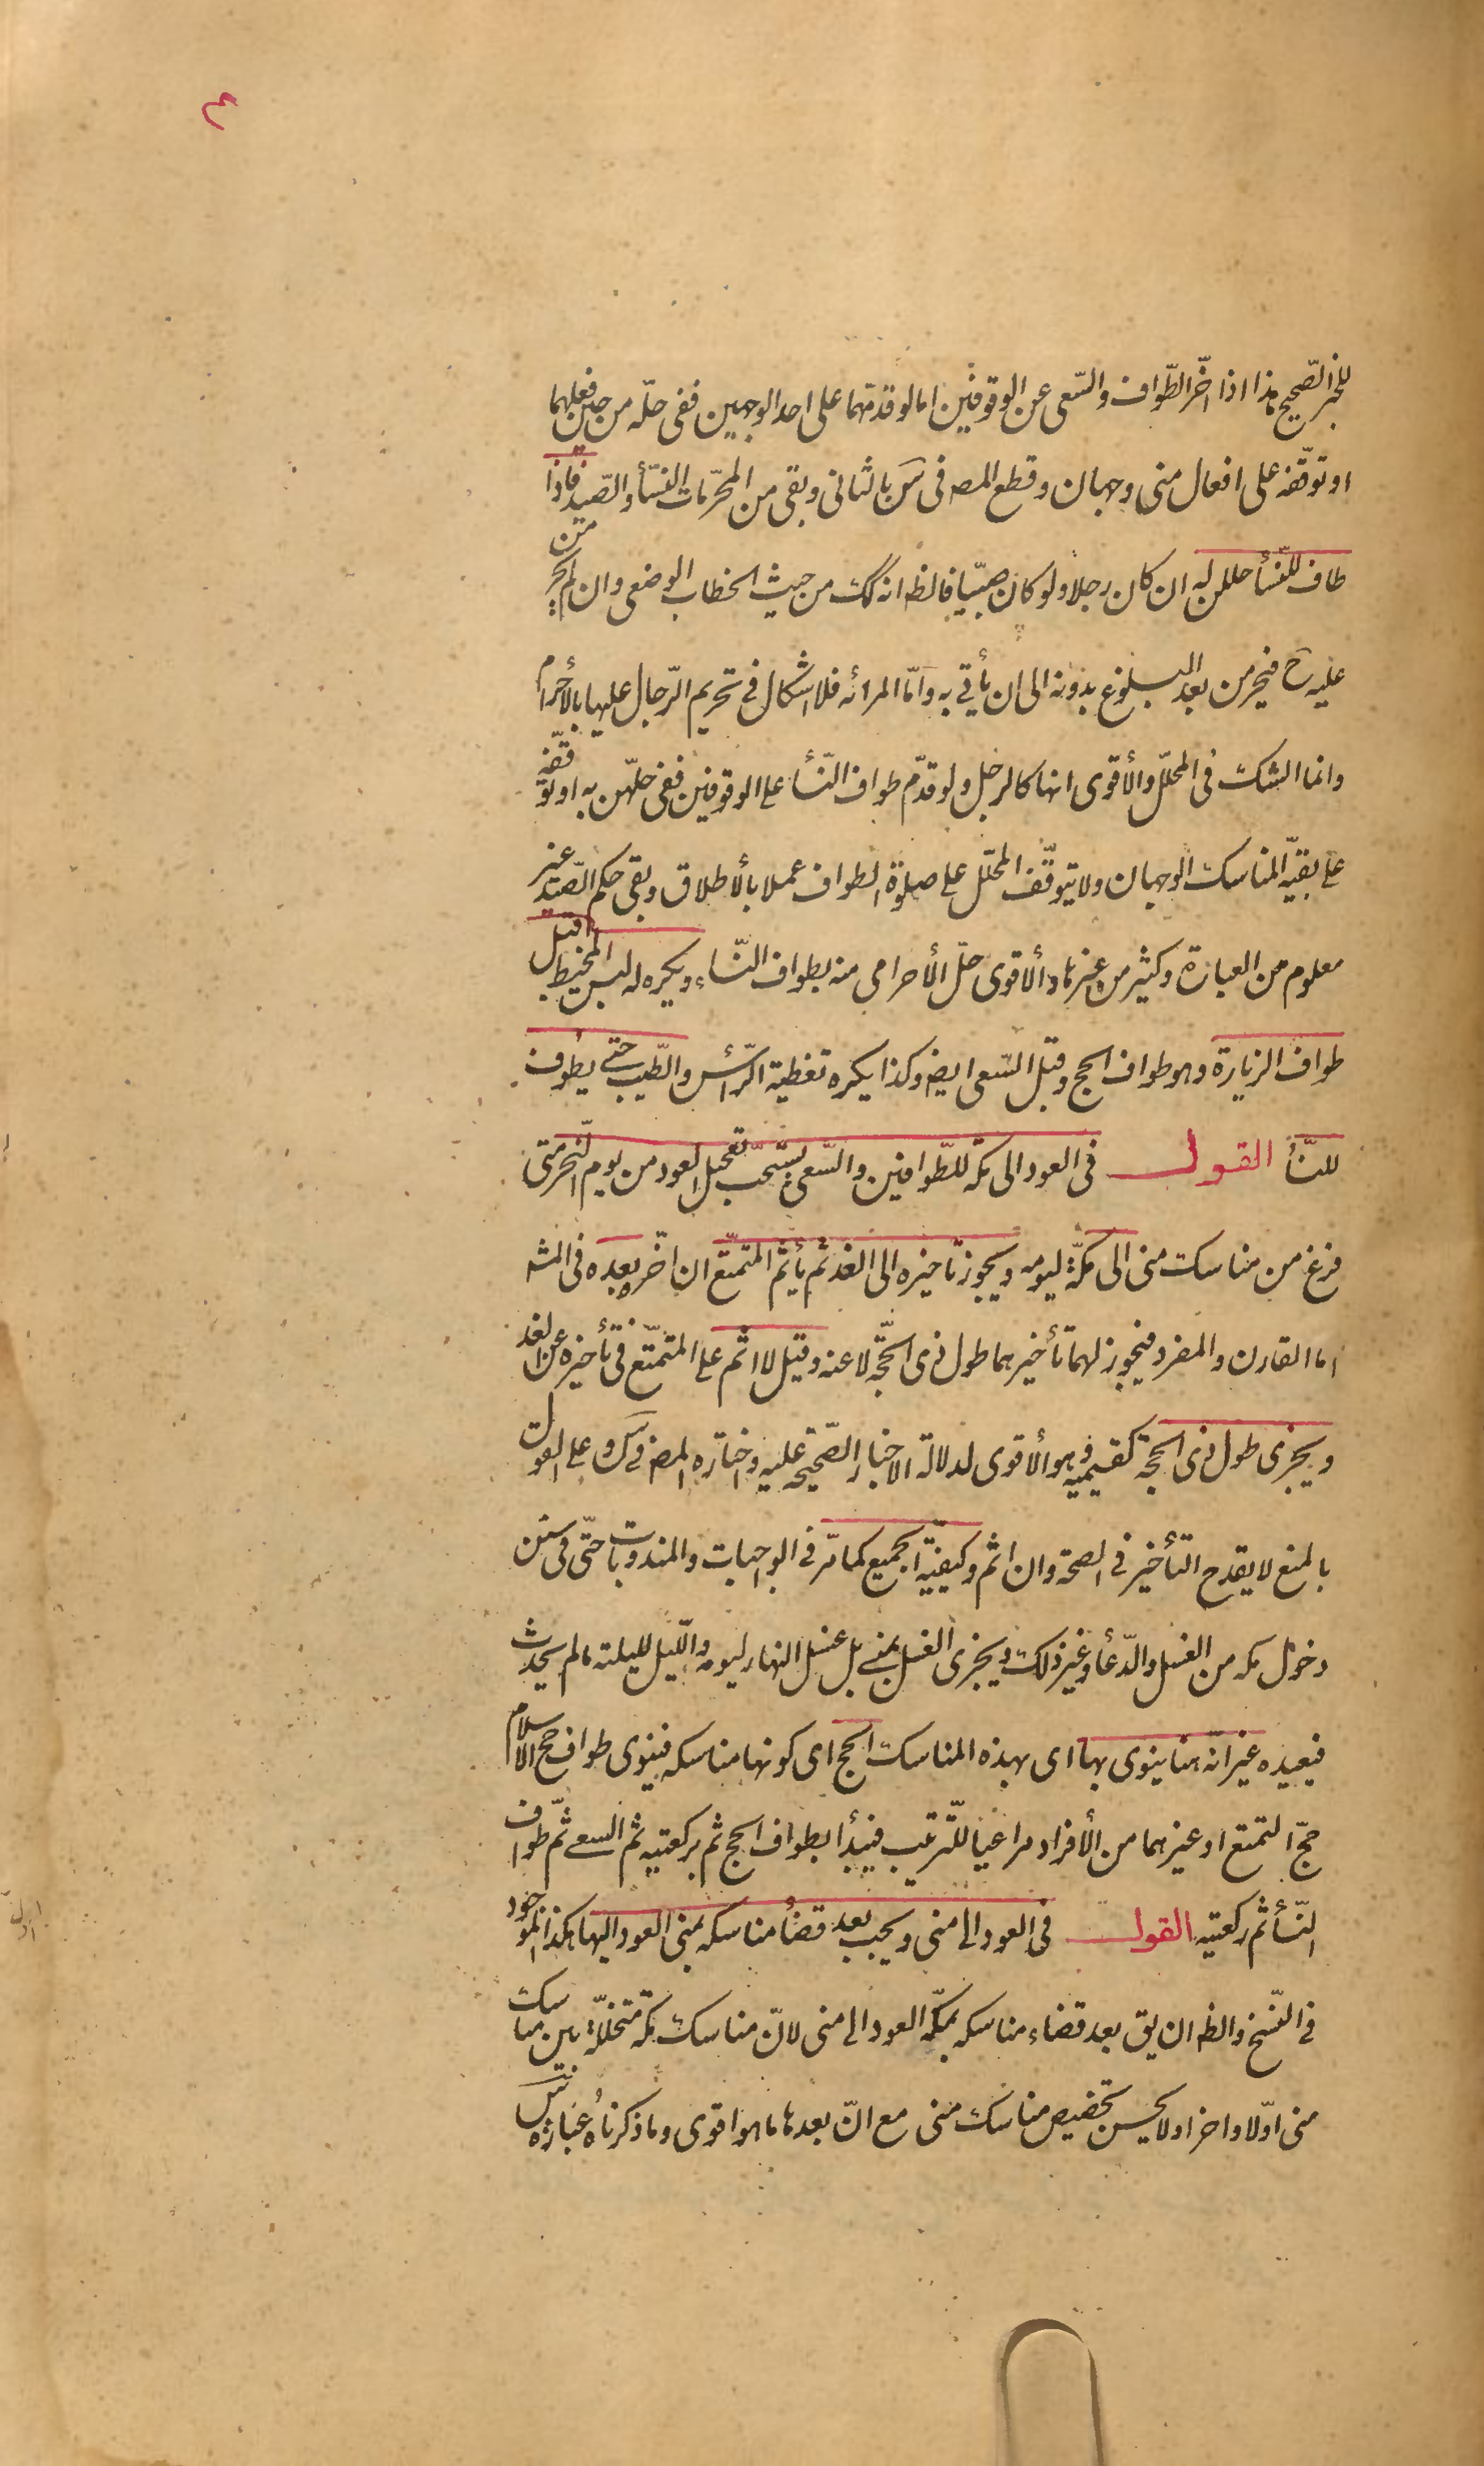 ٤
للخبر الصّحيح هذا اذا اخّر الطّواف والسّعى عن الوقوفين اما لو قدمهما على احد الوجهين ففى حلّه من حين فعلهما
او توقّفه على افعال منى وجهان وقطع المص فى س بالثانى وبقى من المحرّمات النسأ والصّيد فاذا
طاف للنّسأ حللن له ان كان رجلا ولو كان صبيّا فالظ انه كك من حيث الخطاب الوضعى وان لم يحرمن
عليه ح فيحرمن بعد البلوغ بدونه الى ان يأتى به وامّا المرائه فلا اشكال فى تحريم الرّجال عليها بالأحرام
وانما الشك فى المحلّل والأقوى انها كالرجل ولو قدّم طواف النّسأ على الوقوفين ففى حلّهن به او توقّفه
على بقيّه المناسك الوجهان ولا يتوقّف المحلّل على صلوة الطواف عملا بألاطلاق وبقى حكم الصّيد غير
معلوم من العبارة وكثير من غيرها والأقوى حلّ الأحرامى منه بطواف النّساء ويكره له لبس المخيط قبل
طواف الزيارة وهو طواف الحج وقبل السّعى ايض وكذا يكره تغطية الرّأس والطّيب حتى يطوف
للنّسأ القول فى العود الى مكه للطّوافين والسّعى يستحبّ تعجيل العود من يوم النّحر متى
فرغ من مناسك منى الى مكّة ليومه ويجوز تاخيره الى الغد ثم يأثم المتمتّع ان اخّره بعده فى المشه
اما القارن والمفرد فيجوز لهما تأخيرهما طول ذى الحجّة لا عنه وقيل لا اثم على المتمتّع فى تأخيره عن الغد
ويجزى طول ذى الحجة كقسيميه وهو الأقوى لدلالة الاخبار الصّحيحه عليه واختاره المص فى س وعلى القول
بالمنع لا يقدح التأخير فى الصحة وان اثم وكيفيّة الجميع كما مرّ فى الواجبات والمندوبات حتّى فى سنن
دخول مكه من الغسل والدّعأ وغير ذلك ويجزى الغسل بمنى بل غسل النهار ليومه والّليل لليلته مالم يحدث
فيعيده غير انّه هنا ينوى بها اى بهذه المناسك الحج اى كونها مناسكه فينوى طواف حج الاسلام
حجّ التمتع او غيرهما من الأفراد مراعيا للّترتيب فيبدأ بطواف الحج ثم بركعتيه ثم السعى ثمّ طواف
النّسأ ثم ركعتيه القول فى العود الى منى ويجب بعد قضأ مناسكه بمنى العود اليها هكذا الموجود
فى النّسخ والظ ان يق بعد قضاء مناسكه بمكّه العود الى منى لانّ مناسك مكه متخلّلة بين مناسك
منى اوّلا واخرا ولا يحسن تخصيص مناسك منى مع انّ بعدها ما هو اقوى وما ذكرناه عبارة س